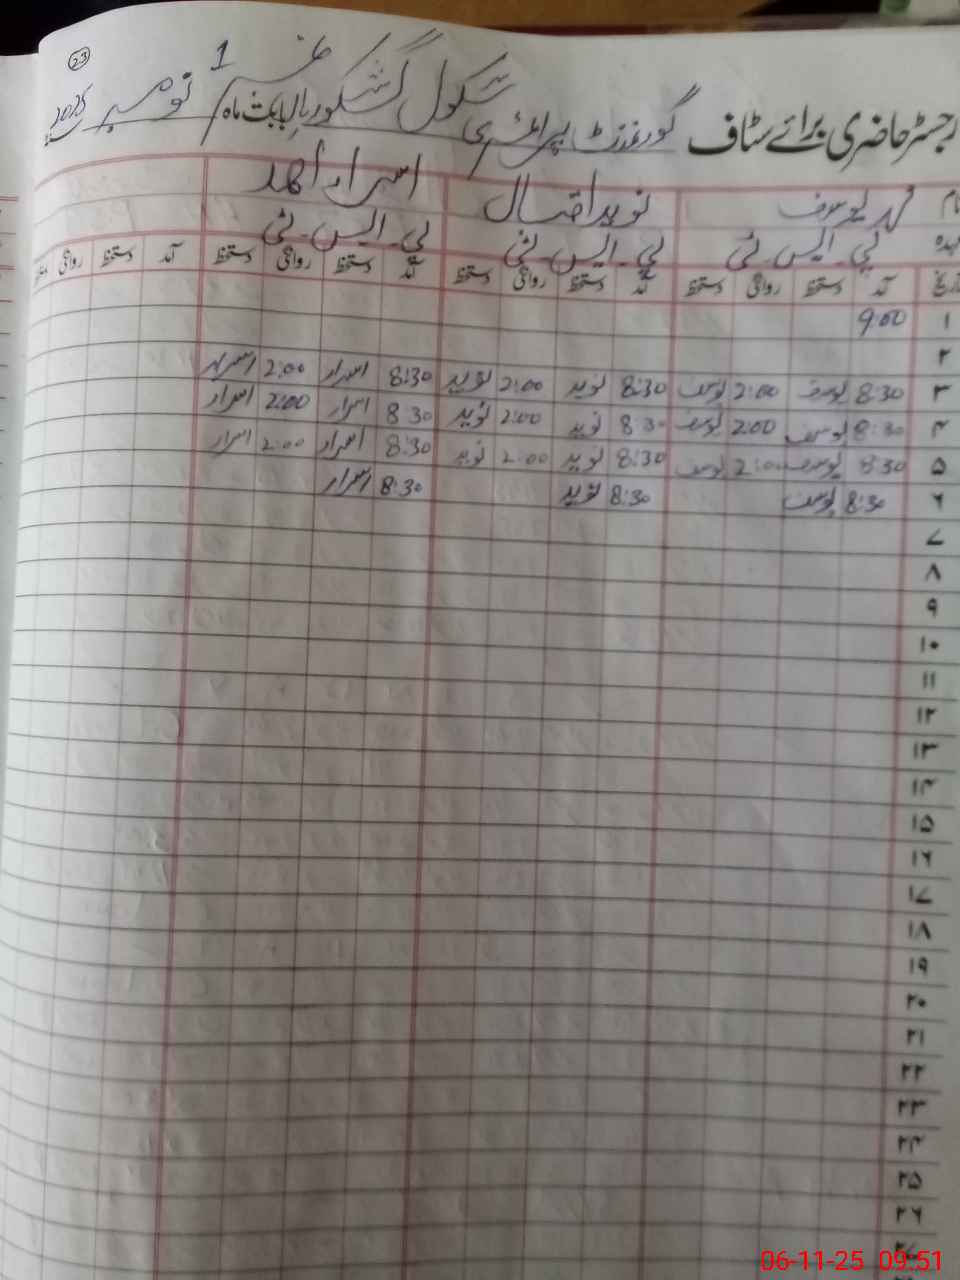 23
رجسٹر حاضری برائے سٹاف گورنمنٹ پرائمری سکول گشکور بالا نمبر 1 بابت ماہ نومبر 2025
نام محمد یوسف نوید اقبال اسرار احمد
عہدہ پی۔ایس۔ٹی پی۔ایس۔ٹی پی۔ایس۔ٹی
تاریخ آمد دستخط روانگی دستخط آمد دستخط روانگی دستخط آمد دستخط روانگی دستخط آمد دستخط روانگی دستخط
۱ 9:00
۲
۳ 8:30 یوسف 2:00 یوسف 8:30 نوید 2:00 نوید 8:30 اسرار 2:00 اسرار
۴ 8:30 یوسف 2:00 یوسف 8:30 نوید 2:00 نوید 8:30 اسرار 2:00 اسرار
۵ 8:30 یوسف 2:00 یوسف 8:30 نوید 2:00 نوید 8:30 اسرار 2:00 اسرار
۶ 8:30 یوسف 8:30 نوید 8:30 اسرار
۷
۸
۹
۱۰
۱۱
۱۲
۱۳
۱۴
۱۵
۱۶
۱۷
۱۸
۱۹
۲۰
۲۱
۲۲
۲۳
۲۴
۲۵
۲۶
۲۷
06-11-25 09:51